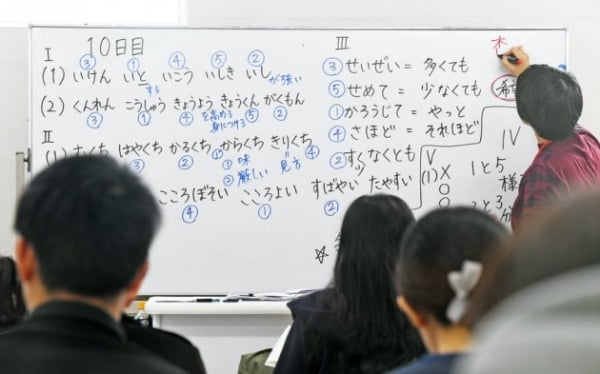 I
10日目
③ ① ④ ⑤ ②
(1) いけん いと いこう いしき いし
が強い
する
(2) くんれん こうしゅう きょうよう きょうくん がくもん
③ ① ④ ⑤ ②
を高める
身につける
II
はやくち かるくち からくち きりくち
③ ② ① ④
① 味
② 厳しい 見方
こころぼそい こころよい すばやい たやすい
④ ① ②
III
③ せいぜい = 多くても
⑤ せめて = 少なくても
① かろうじて = やっと
④ さほど = それほど
② すくなくとも
IV
V
(1) X 1と5
O
O 2と3
様
木